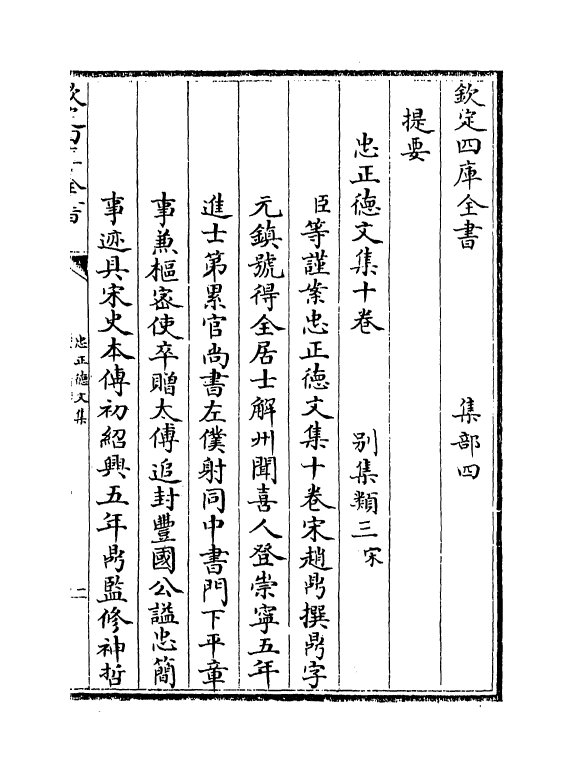 欽定四庫全書　集部四
提要
忠正德文集十卷　别集類三宋
臣等謹案忠正德文集十卷宋趙鼎撰鼎字
元鎮號得全居士解州聞喜人登崇寧五年
進士第累官尚書左僕射同中書門下平章
事兼樞密使卒贈太傅追封豐國公謚忠簡
事迹具宋史本傳初紹興五年鼎監修神哲
忠正德文集